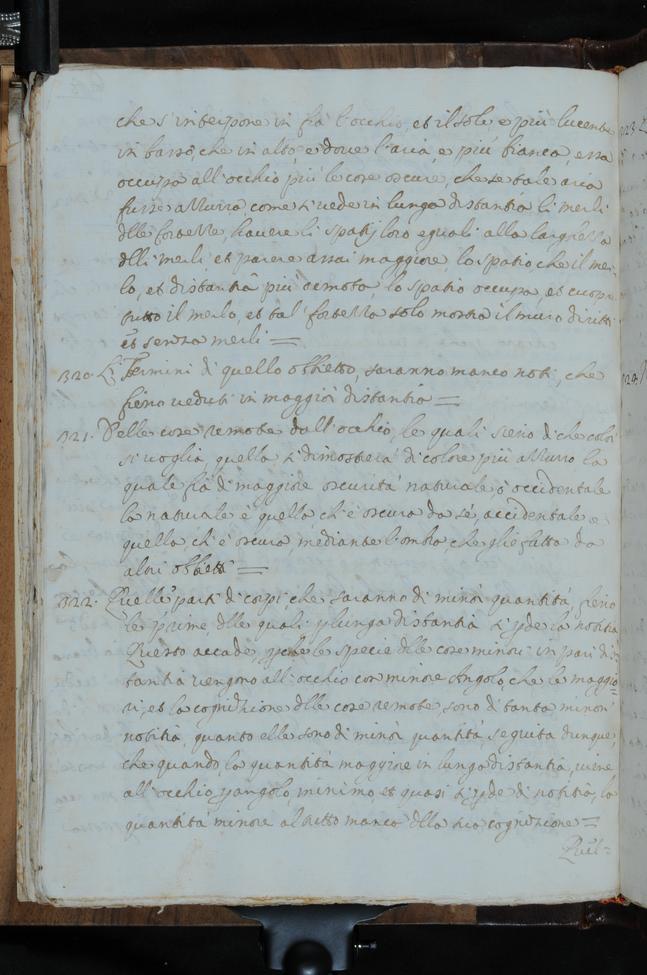 che s'interpone in fra l'occhio, et il sole, e più lucente
in basso, che in alto, e dove l'aria, e più bianca, essa
occupa all'occhio più le cose oscure, che se tale aria
fusse azzurra come si vede in lunga distantia li merli
delle fortezze, havere li spatij loro eguali alla larghezza
delli merli, et parere assai maggiore, lo spatio che il mer-
lo, et distantia più remota, lo spatio occupa, et cuopre
tutto il merlo, et tal fortezza solo mostra il muro diritto
et senza merli =
320. Li Termini di quello obbietto, saranno manco noti, che
fieno veduti in maggior distantia =
321. Delle cose remote dall'occhio, le quali sieno di che color
si voglia, quella si dimosterà di colore più azzurro la
quale fia di maggiore oscurità naturale o accidentale
la naturale è quella ch'è oscura da sé, accidentale e
quella ch'è oscura, mediante l'ombra, che gli è fatta da
altri obbietti =
322. Quelle parti di corpi, che saranno di minor quantità, fieno
le prime, delle quali p lunga distantia si pderà notitia
Questo accade, pche le specie delle cose minori in pari dis-
tantia vengono all'occhio con minore Angolo, che le maggio=
ri, et la cognitione delle cose remote, sono di tanta minori
notitia, quanto elle sono di minor quantità, seguita dunque,
che quando, la quantità maggiore in lunga distantia, viene
all'occhio p angolo, minimo, et quasi si pde di notitia, la
quantità minore al tutto manca della sua cognitione =
Quel=